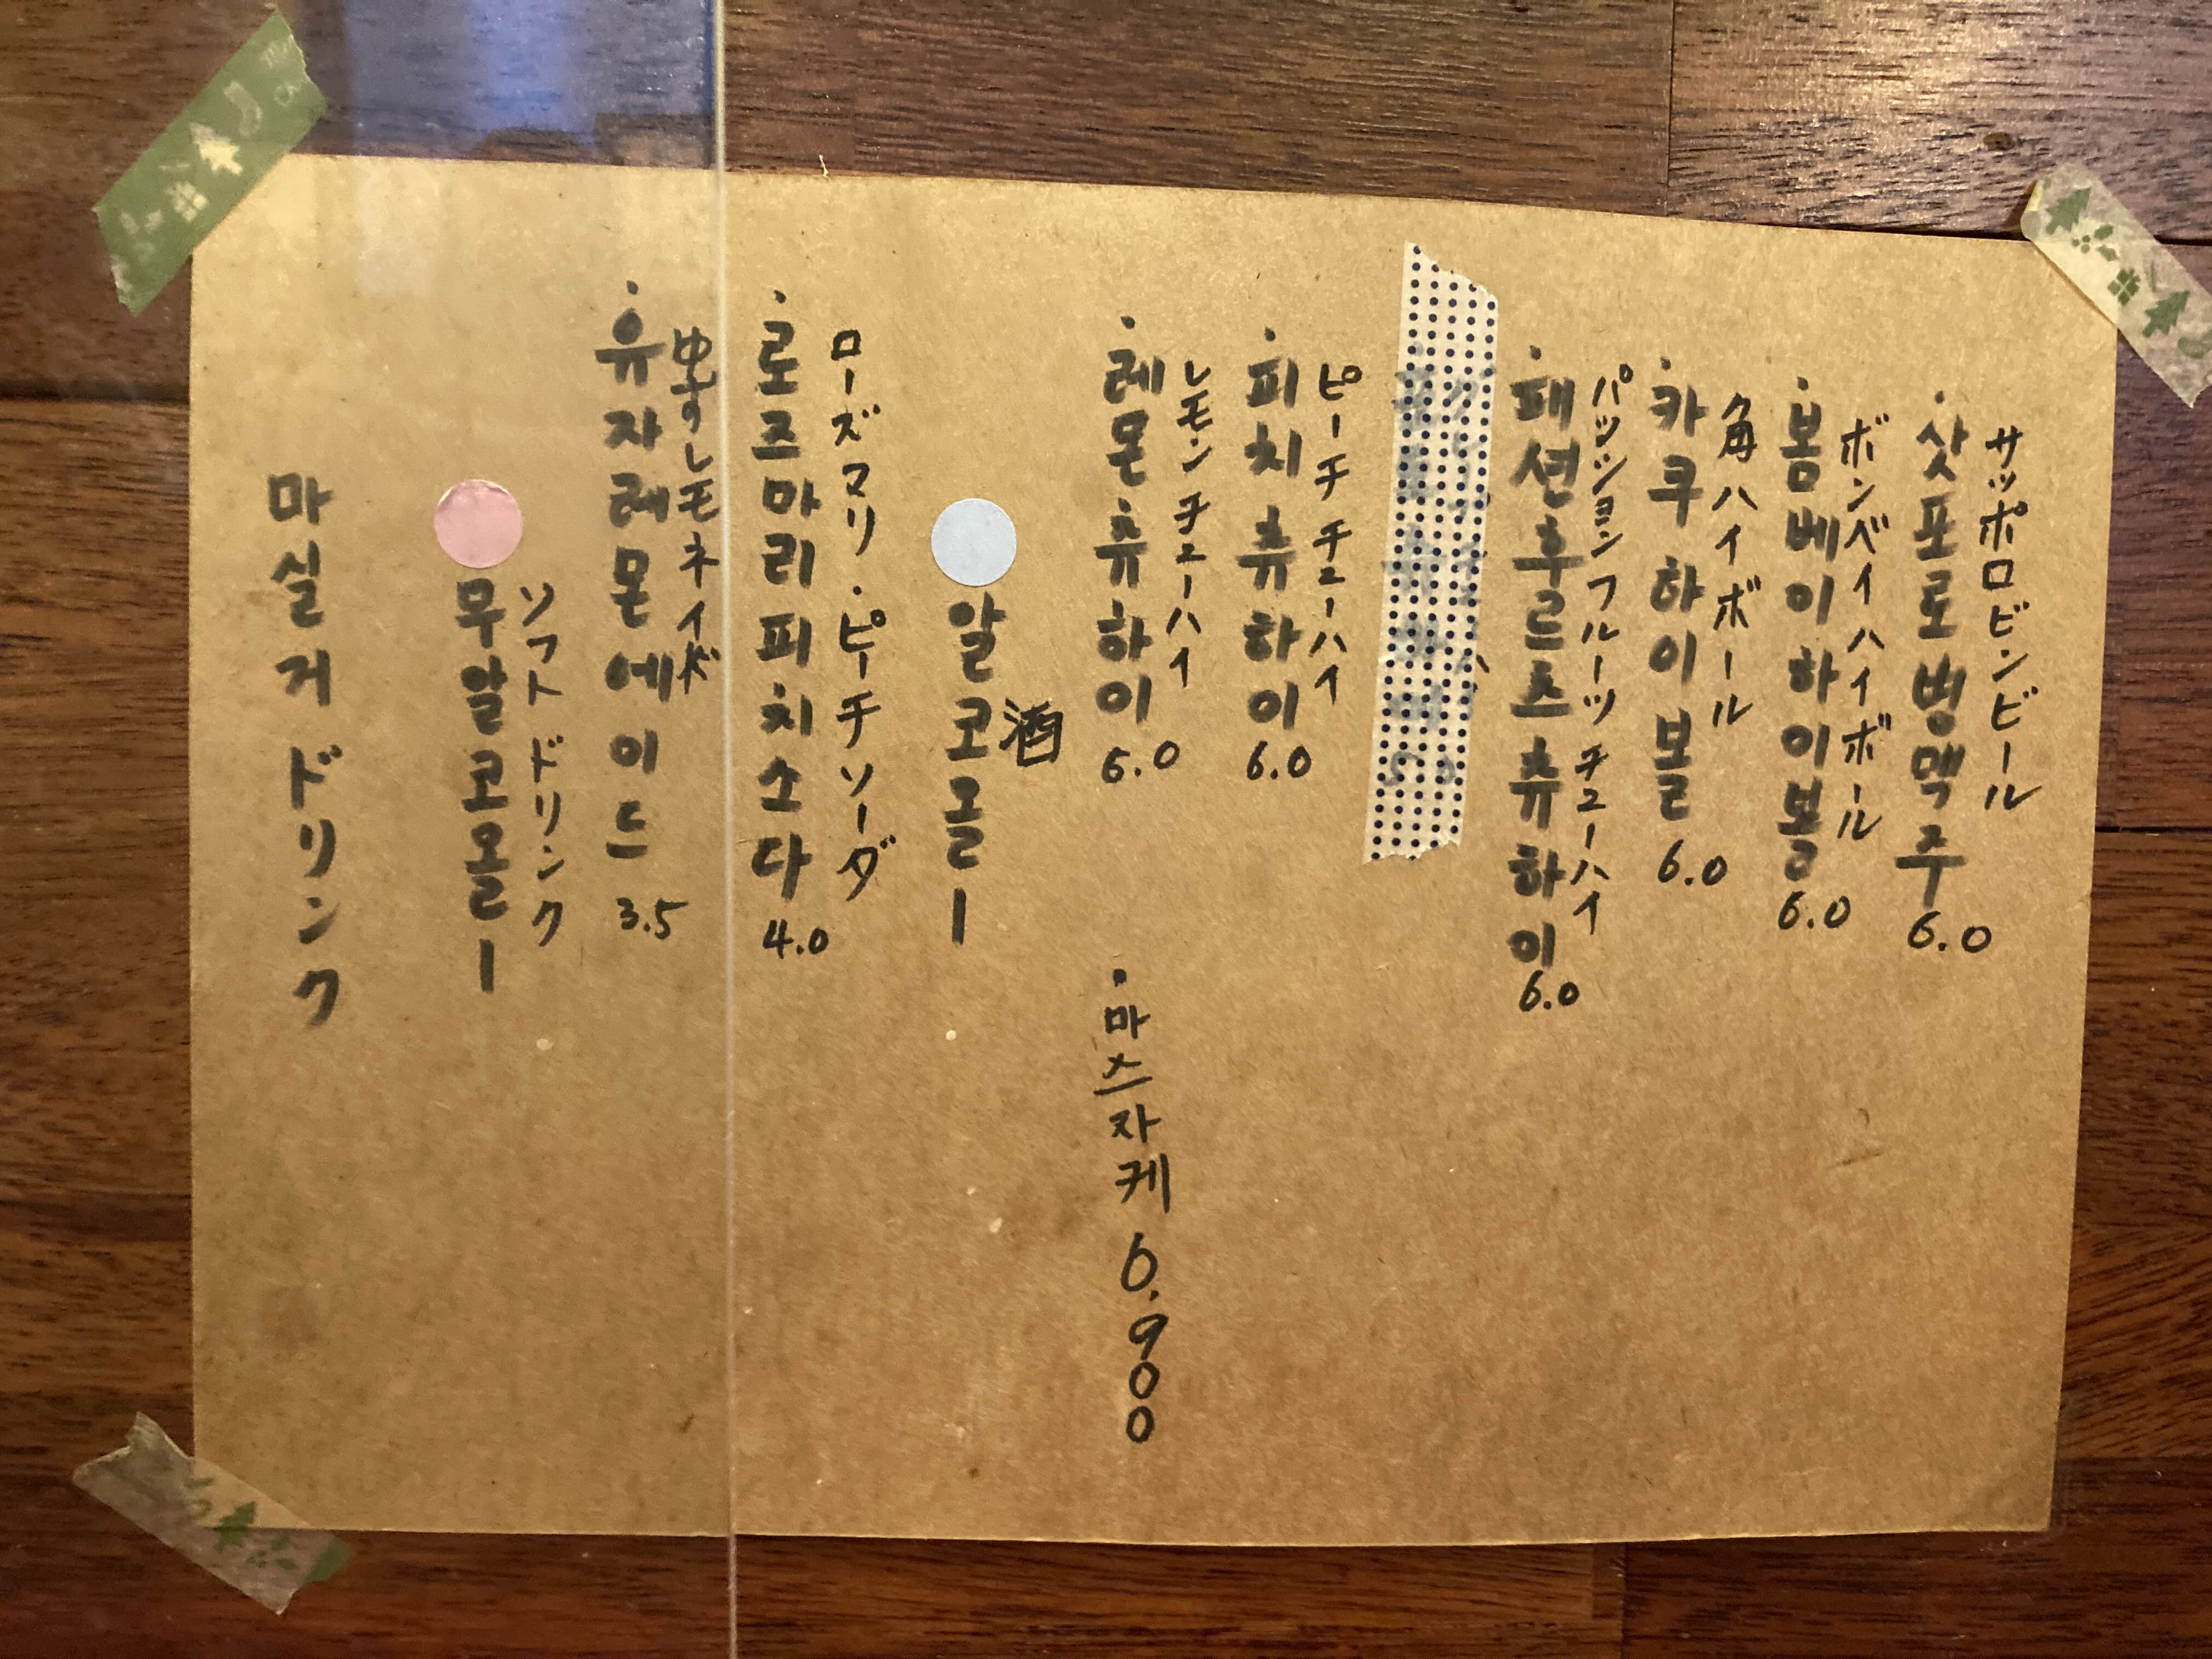 마실거 ドリンク
무알코올ㅣ
ソフトドリンク
・유자레몬에이드 3.5
ゆずレモネイド
・로즈마리피치소다 4.0
ローズマリ・ピーチソーダ
알코올ㅣ
酒
・레몬츄하이 6.0
レモンチューハイ
・마스자케 6.900
・피치츄하이 6.0
ピーチチューハイ
・패션후르츠츄하이 6.0
パッションフルーツチューハイ
・카쿠하이볼 6.0
角ハイボール
・봄베이하이볼 6.0
ボンベイハイボール
・삿포로병맥주 6.0
サッポロビンビール